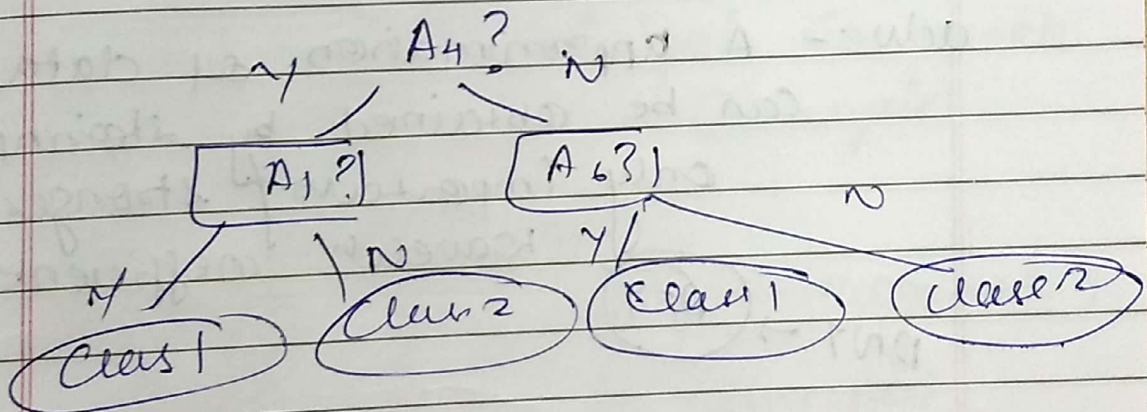 A4?
Y N
A1? A6?
Y N Y N
Class 1 Class 2 Class 1 Class 2